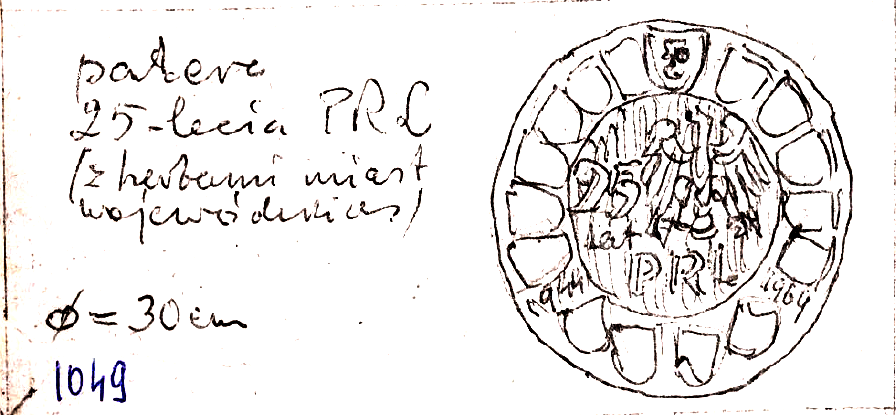 patera
25-lecia PRL
(z herbami miast
wojewódzkich)
ø = 30 cm
1049
25
lat
PRL
1944
1969